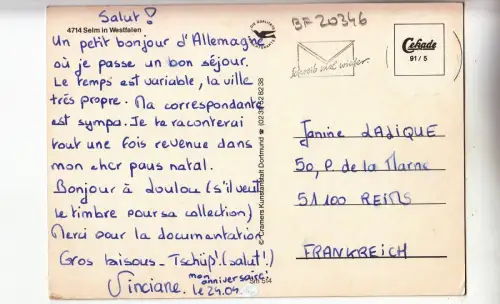 Salut !
4714 Selm in Westfalen
Un petit bonjour d'Allemagne
où je passe un bon séjour.
Le temps est variable, la ville
très propre. Ma correspondante
est sympa. Je te raconterai
tout une fois revenue dans
mon cher pays natal.
Bonjour à Loulou (s'il veut
le timbre pour sa collection)
Merci pour la documentation
Gros bisous - Tschüß! (salut!)
Vinciane.
mon
anniversaire:
le 24.04.
© Cramers Kunstanstalt Dortmund ☎ (02 31) 52 82 38
BF 20346
Schreib mal wieder.
Cekade
91 / 5
Janine LALIQUE
50, P. de la Marne
51100 REIMS
FRANKREICH